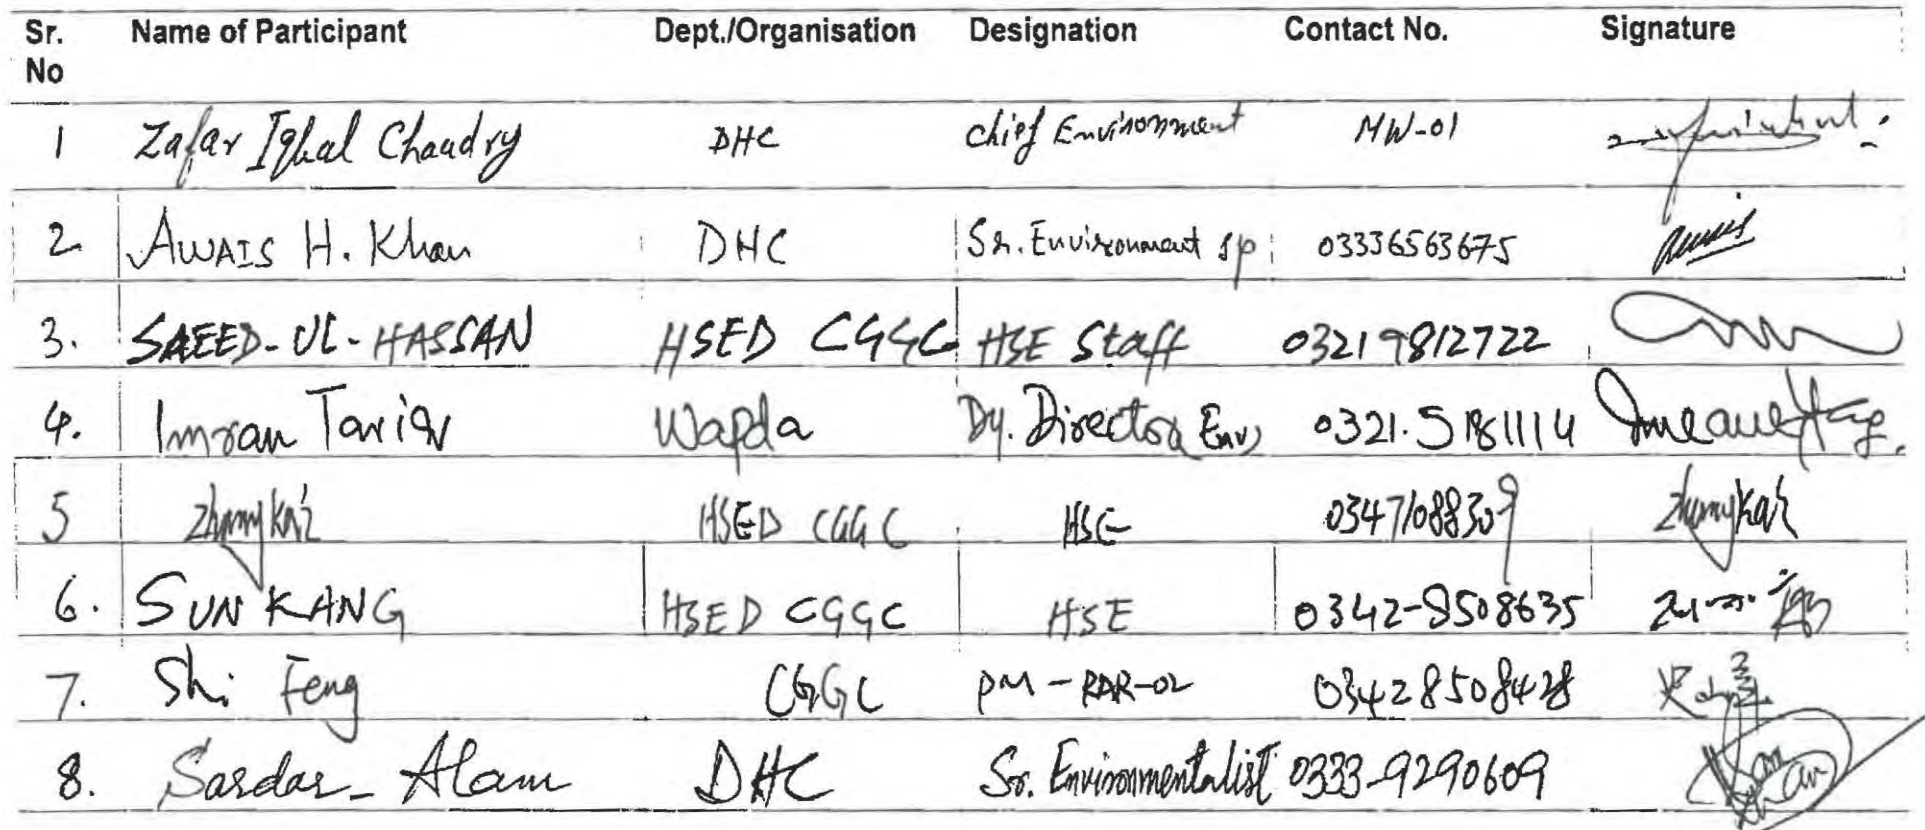 Sr. No Name of Participant Dept./Organisation Designation Contact No. Signature
1 Zafar Iqbal Chaudry DHC Chief Environment MW-01
2 AWAIS H. Khan DHC Sr. Environment sp 03336563675 awais
3. SAEED-UL-HASSAN HSED CGGC HSE Staff 03219812722
4. Imran Tariq Wapda Dy. Director Env) 0321.5181114
5 Zhang Kai HSED CGGC HSE 03471088309 Zhang Kai
6. SUN KANG HSED CGGC HSE 0342-8508635
7. Shi Feng CGGC PM-RAR-02 03428508428
8. Sardar-Alam DHC Sr. Environmentalist 0333-9290609